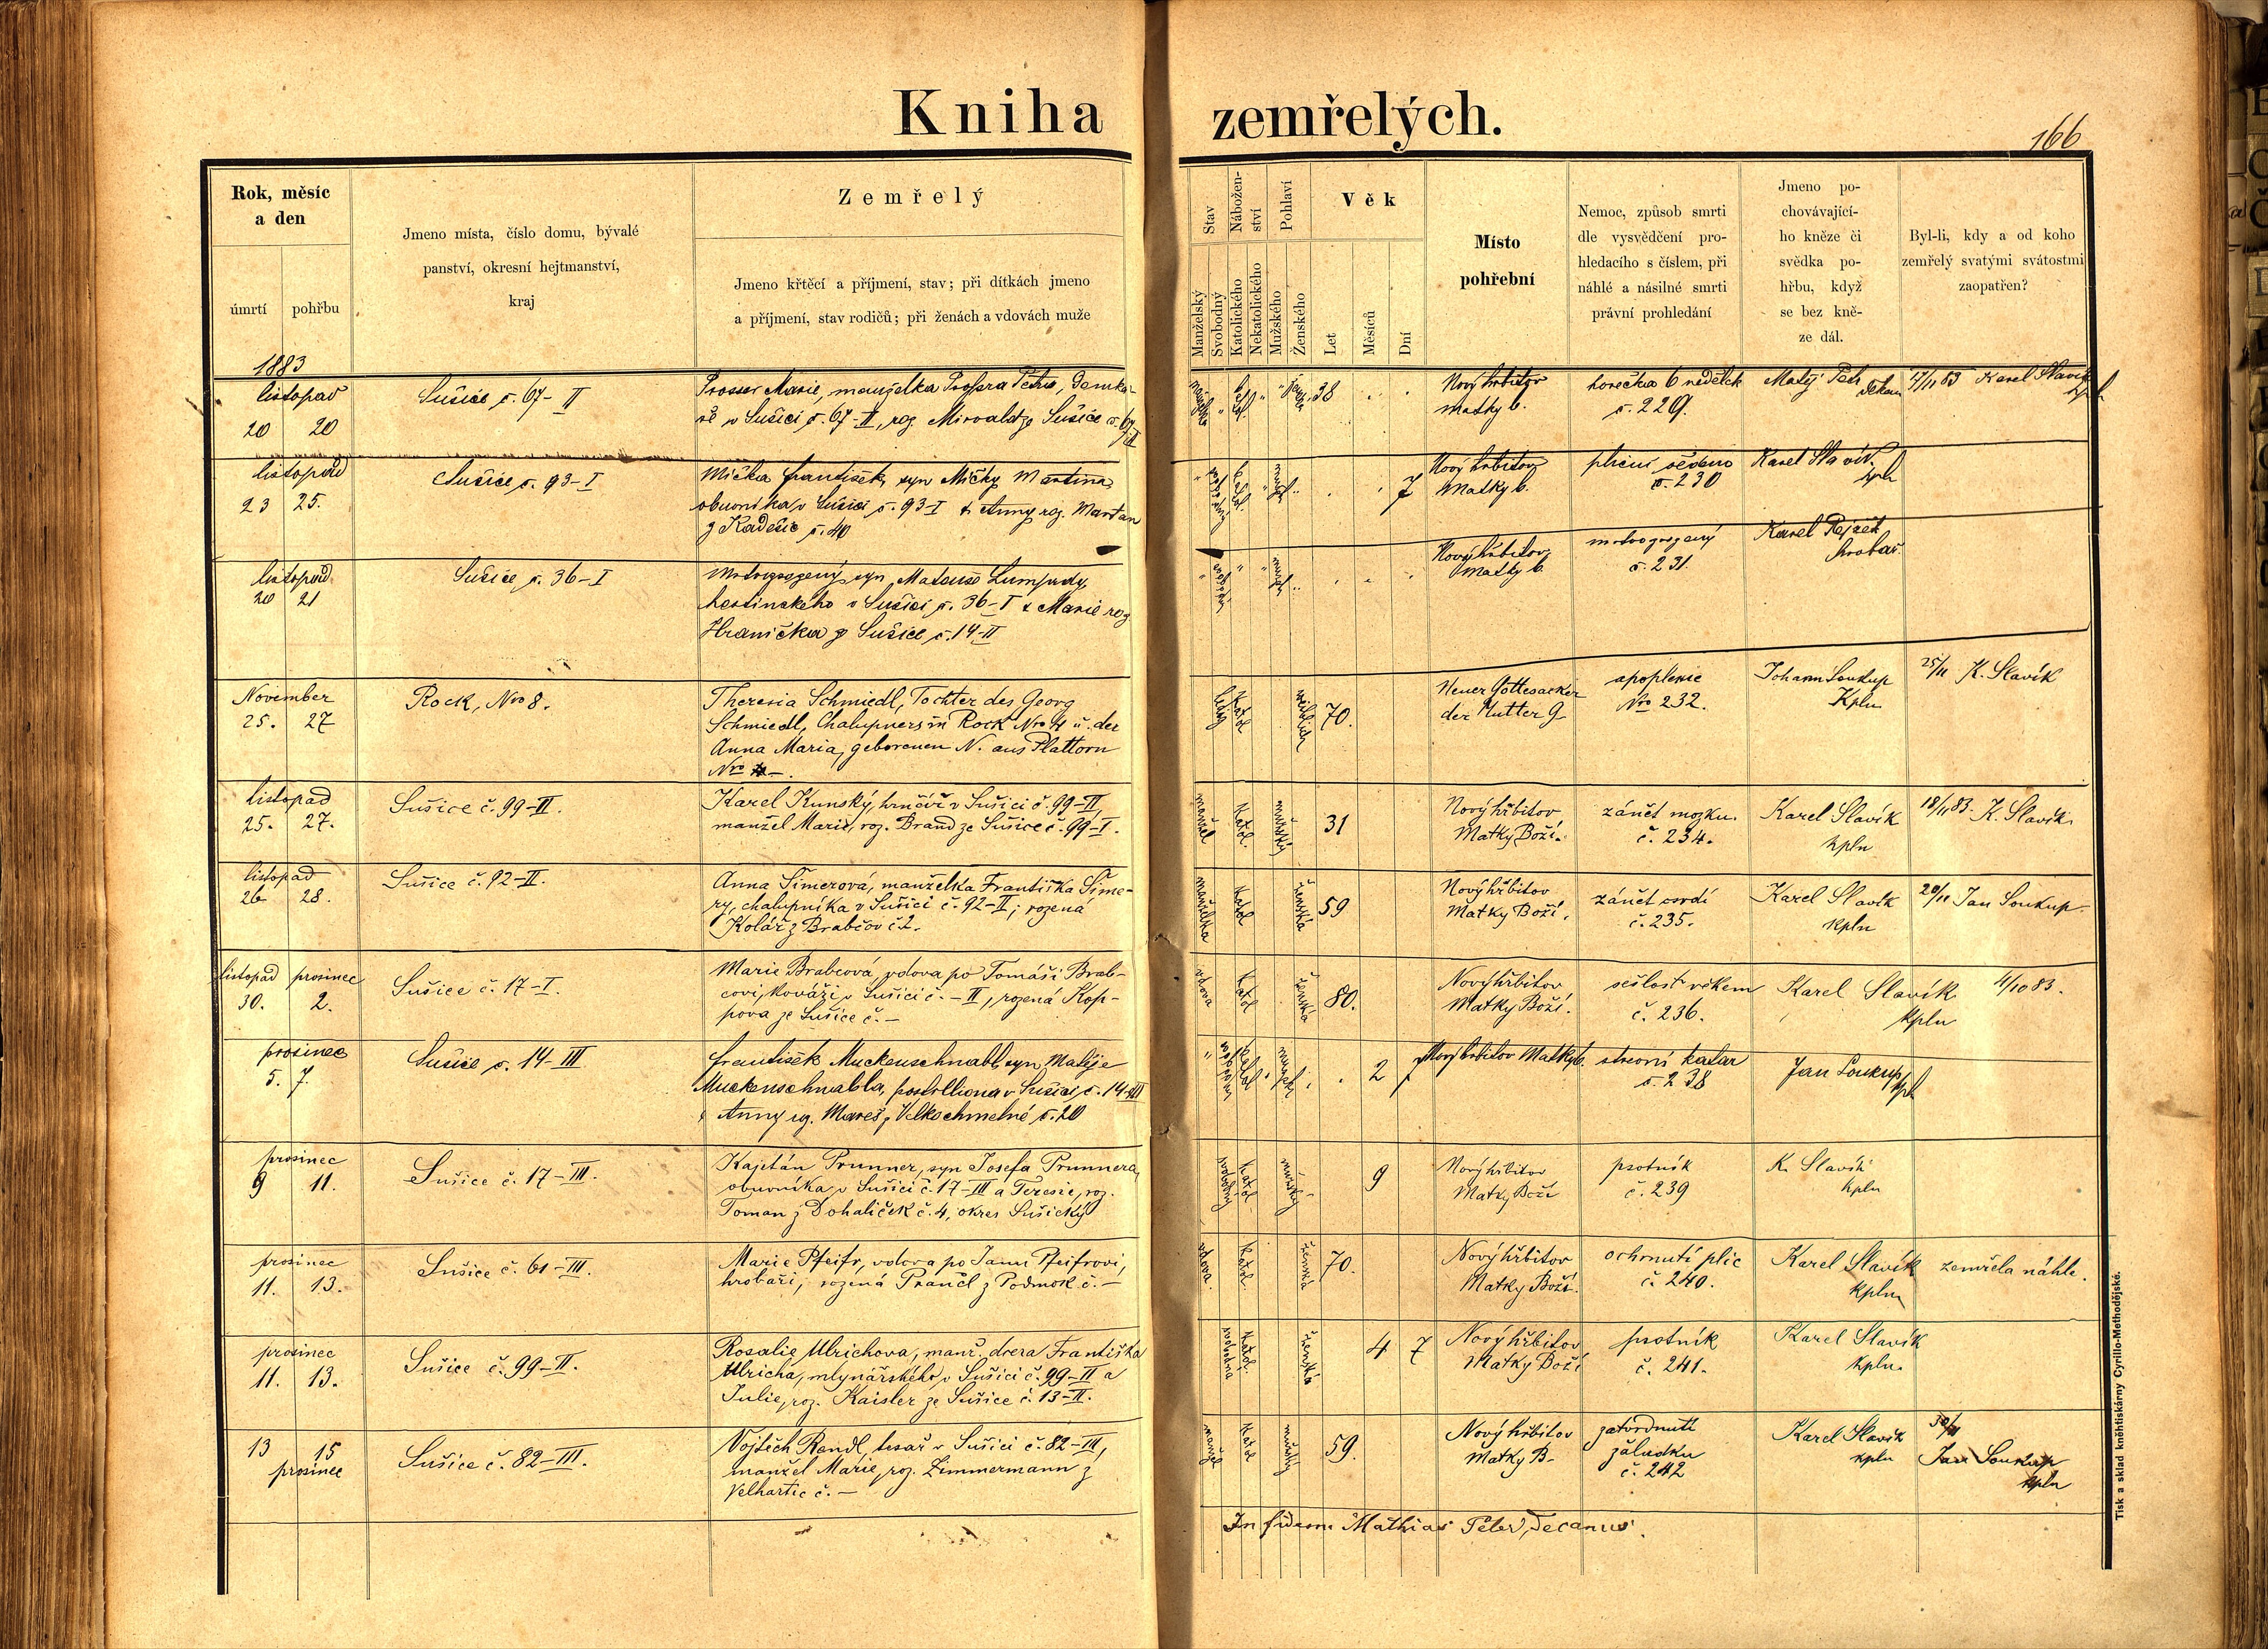 Kniha zemřelých.
166
Rok, měsíc
a den
úmrtí
pohřbu
Jmeno místa, číslo domu, bývalé
panství, okresní hejtmanství,
kraj
Zemřelý
Jmeno křtěcí a příjmení, stav; při dítkách jmeno
a příjmení, stav rodičů; při ženách a vdovách muže
Stav
Nábožen-
ství
Pohlaví
Věk
Manželský
Svobodný
Katolického
Nekatolického
Mužského
Ženského
Let
Měsíců
Dní
Místo
pohřební
Nemoc, způsob smrti
dle vysvědčení pro-
hledacího s číslem, při
náhlé a násilné smrti
právní prohledání
Jmeno po-
chovávající-
ho kněze či
svědka po-
hřbu, když
se bez kně-
ze dál.
Byl-li, kdy a od koho
zemřelý svatými svátostmi
zaopatřen?
1883
listopad
20 20
Sušice č. 67-II
Marie, manželka Petra,
v Sušici č. 67-II, roz. Sušice č. 67
II
38
Nový hřbitov
matky b.
horečka 6 nedělek
č. 229.
Matěj Petr
děkan
17/11 83 Karel Slavík
kpl
listopad
23 25.
Sušice č. 93-I
Mička František, syn Mičky Martina,
obuvníka v Sušici č. 93-I & Anny roz. Martan
z Kadešic č. 40
svobodný
7
Nový hřbitov
matky b.
č 230
Karel Slavík
kpl
listopad
20 21
Sušice č. 36-I
Mrtvorozený syn Matouše
v Sušici č. 36-I & Marie roz.
Hranička z Sušice č. 14-II
Nový hřbitov
matky b.
mrtvorozený
č. 231.
Karel
hrobař
November
25. 27
Rock, Nro 8.
Theresia Schmiedl, Tochter des Georg
Schmiedl, Chalupners in Rock Nro 4 u. der
Anna Maria, geborenen N. aus Plattorn
Nro –.
ledig
Kathol
weiblich
70.
Neuer Gottesacker
der Mutter G.
apoplexie
Nro 232.
Johann Soukup
Kpln
25/11 K. Slavík
listopad
25. 27.
Sušice č. 99-II.
Karel Kunský, hrnčíř v Sušici č. 99-II,
manžel Marie, roz. Brand ze Sušice č. 99-I.
manžel
Katol.
mužský
31
Nový hřbitov
Matky Boží.
zánět mozku.
č. 234.
Karel Slavík
kpln
18/11 83. K. Slavík
listopad
26 28.
Sušice č. 92-II.
Anna Šimerová, manželka Františka Šime-
ry, chalupníka v Sušici č. 92-II; rozená
Kolář z Brabčov č 2.
manželka
Katol
ženská
59
Nový hřbitov
Matky Boží.
zánět osrdí
č. 235.
Karel Slavík
kpln
20/11 Jan Soukup
listopad prosinec
30. 2.
Sušice č. 17-I.
Marie Brabcová, vdova po Tomáši Brab-
covi, kováři v Sušici č. – II, rozená Kop-
pova ze Sušice č. –
vdova
Katol
ženská
80.
Nový hřbitov
Matky Boží.
sešlost věkem
č. 236.
Karel Slavík
kpln
4/10 83.
prosinec
5. 7.
Sušice č. 14-III
František Muckenschnabl, syn Matěje
Muckenschnabla, postilliona v Sušici č. 14-III
& Anny roz. Mareš z Velkochmelné č. 20
svobodný
mužský
2
Nový hřbitov Matky b.
střevní katar
č. 238
Jan Soukup
kpl
prosinec
9 11.
Sušice č. 17-III.
Kajetán Prunner, syn Josefa Prunnera,
obuvníka v Sušici č. 17-III a Terezie, roz.
Toman z Dohaliček č. 4, okres Sušický
svobodný
Katol
mužský
9
Nový hřbitov
Matky Boží
psotník
č. 239
K. Slavík
kpln
prosinec
11. 13.
Sušice č. 61-III.
Marie Pfeifr, vdova po Janu Pfeifrovi,
hrobaři, rozená Prančl z Podmok č. –
vdova.
Katol.
ženská
70.
Nový hřbitov
Matky Boží.
ochrnutí plic
č. 240.
Karel Slavík
kpln
zemřela náhle.
prosinec
11. 13.
Sušice č. 99-II.
Rosalie Ulrichova, manž. dcera Františka
Ulricha, mlynářského v Sušici č. 99-II a
Julie, roz. Kaisler ze Sušice č. 13-II.
svobodna
Katol.
ženská
4 7
Nový hřbitov
Matky Boží
psotník
č. 241.
Karel Slavík
kpln.
13 15
prosinec
Sušice č. 82-III.
Vojtěch Rendl, tesař v Sušici č. 82-III,
manžel Marie, roz. Zimmermann z
Velhartic č. –
manžel
Katol
mužský
59.
Nový hřbitov
Matky B.
zatvrdnutí
žaludku
č. 242
Karel Slavík
kpln
30/11
Jan Soukup
kpln
In fidem Mathias Petr, Decanus.
Tisk a sklad kněhtiskárny Cyrillo-Methodějské.